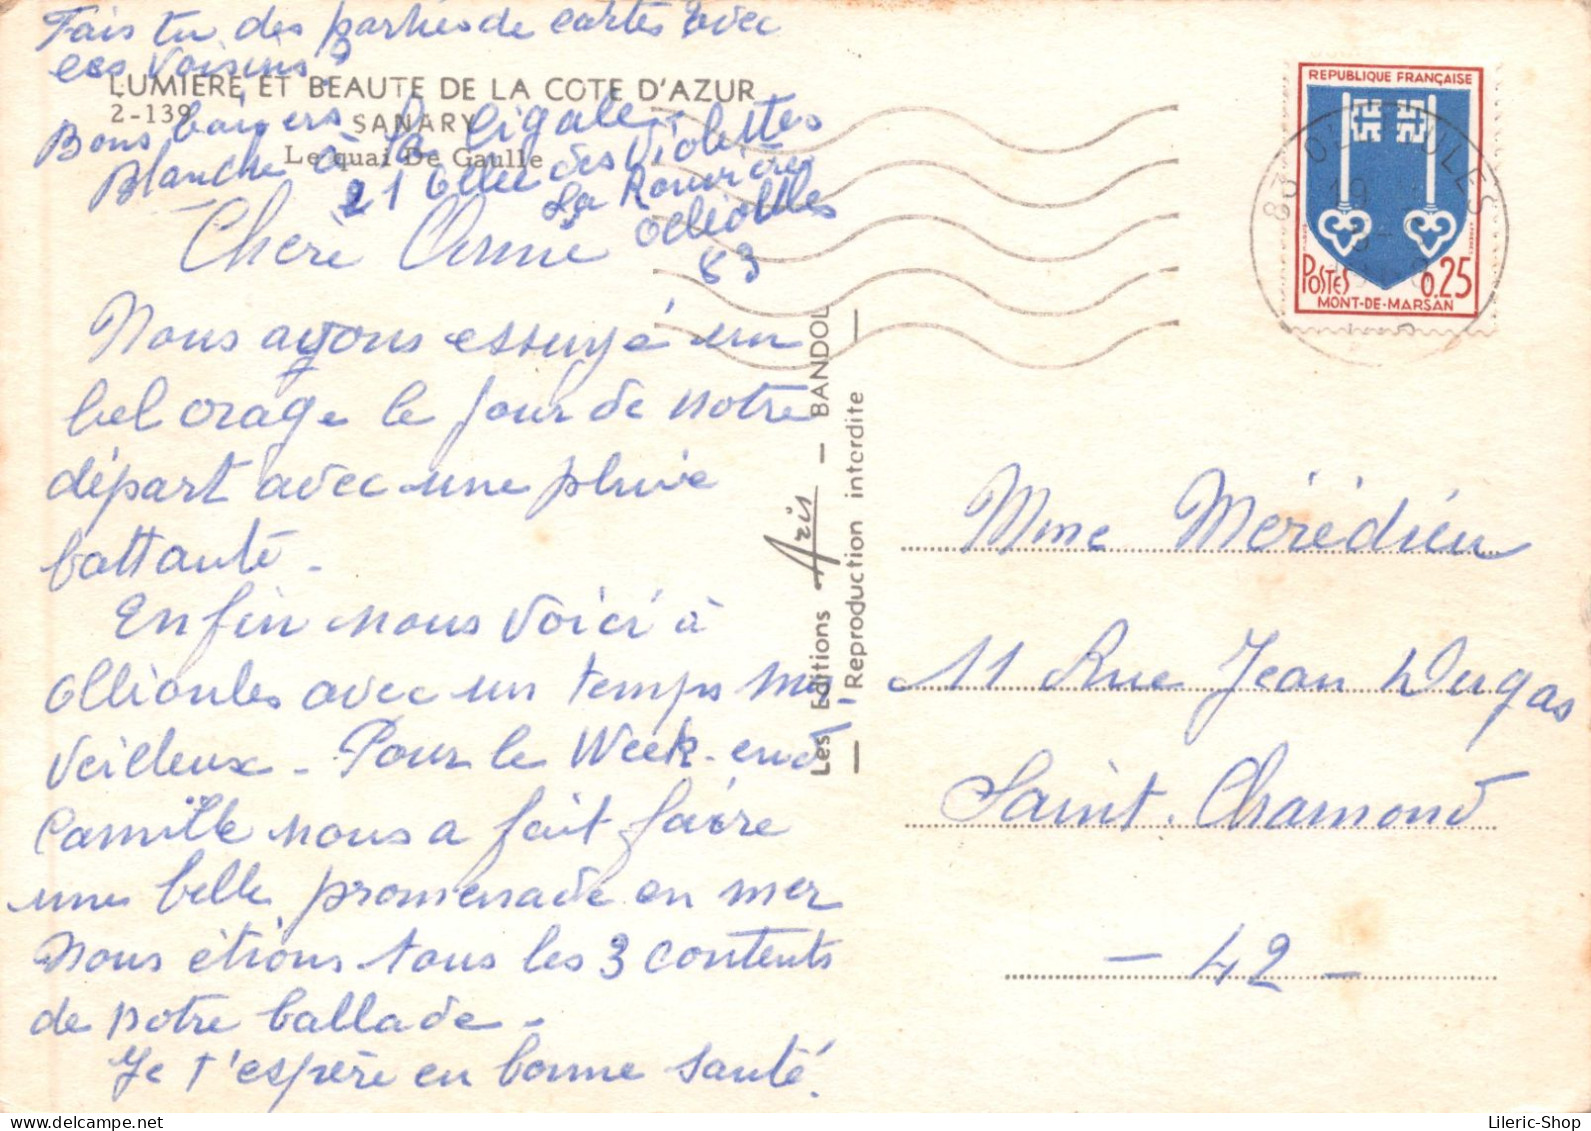 Fais tu des parties de cartes avec
les voisins?
LUMIERE ET BEAUTE DE LA COTE D'AZUR
2-139
SANARY
Le quai De Gaulle
Bons baisers
Blanche à la Cigale
21 allée des Violettes
La Rouvière
Ollioules
83
Chère Amie
Nous ayons essuyé un
bel orage le jour de notre
départ avec une pluie
battante.
Enfin nous voici à
Ollioules avec un temps mer-
veilleux. Pour le Week-end
Camille nous a fait faire
une belle promenade en mer
Nous étions tous les 3 contents
de notre ballade.
Je t'espère en bonne santé.
Les Editions Aris — BANDOL
— Reproduction interdite —
REPUBLIQUE FRANÇAISE
POSTES 0,25
MONT-DE-MARSAN
83 OLLIOULES
19
Mme Mérédieu
11 Rue Jean Dugas
Saint-Chamond
- 42 -
Lileric-Shop